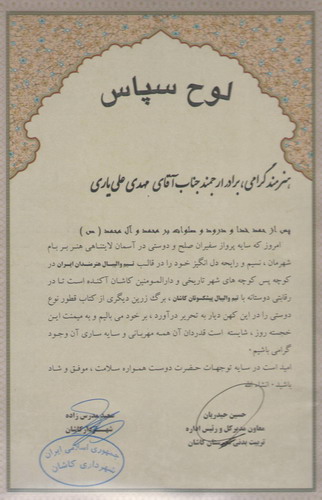 لوح سپاس
هنرمند گرامی، برادر ارجمند جناب آقای مهدی علی یاری
پس از حمد خدا و درود و صلوات بر محمد و آل محمد ( ص )
امروز که سایه پرواز سفیران صلح و دوستی در آسمان لایتناهی هنر بر بام
شهرمان، نسیم و رایحه دل انگیز خود را در قالب تیم والیبال هنرمندان ایران در
کوچه پس کوچه های شهر تاریخی و دارالمومنین کاشان آکنده است تا در
رقابتی دوستانه با تیم والیبال پیشکسوتان کاشان ، برگ زرین دیگری از کتاب قطور نوع
دوستی را در این کهن دیار به تحریر درآورد ، بر خود می بالیم و به میمنت این
خجسته روز، شایسته است قدردان آن همه مهربانی و سایه ساری آن وجود
گرامی باشیم .
امید است در سایه توجهات حضرت دوست همواره سلامت ، موفق و شاد
باشید . انشاء الله
حسین حیدریان
معاون مدیرکل و رئیس اداره
تربیت بدنی شهرستان کاشان
سعید مدرس زاده
شهردار کاشان
جمهوری اسلامی ایران
شهرداری کاشان